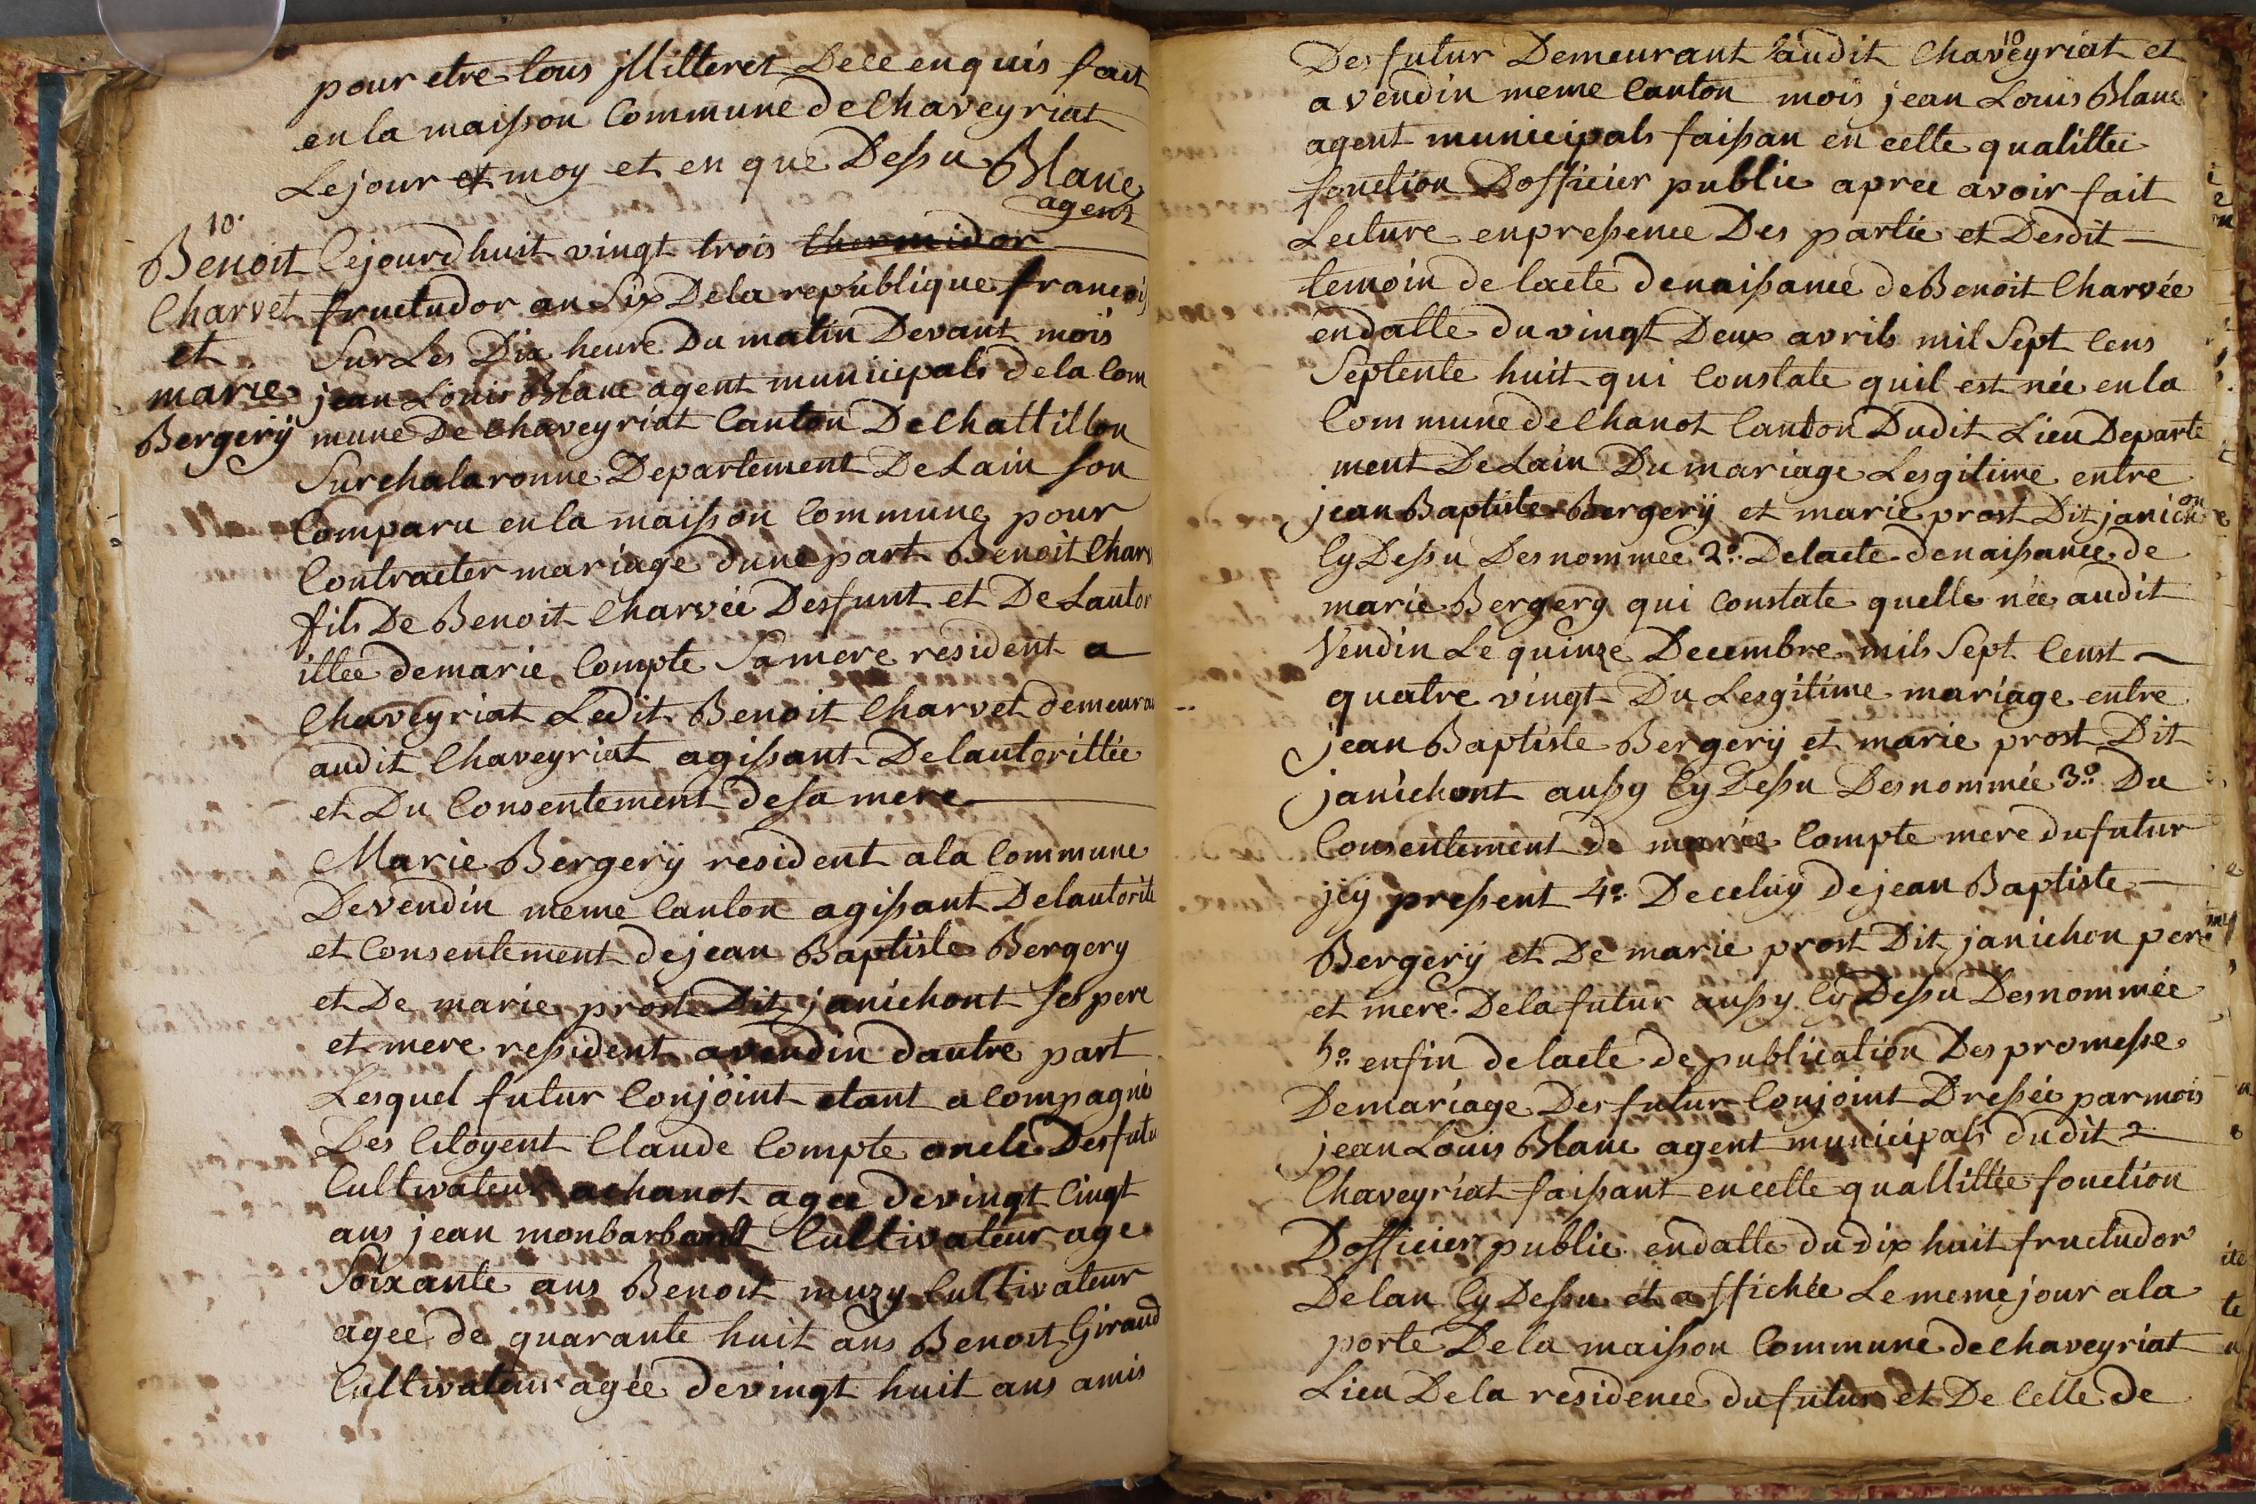 pour etre tous jllitteret Dece enquis fait
en la maisson Commune de Chaveyriat
Le jour et moy et en que Dessu Blanc
agent
10.
Benoit
Charvet
et
marie
Bergerÿ
Cejourdhuit vingt trois thermidor
fructudor an Six De la republique francois
Sur Les Dix heure Du matin Devant mois
jean Louis Blanc agent municipals de la Com
mune De Chaveyriat Canton De Chattillon
Sur chalaronne Departement De Lain son
Comparu en la maisson Commune pour
Contracter mariage dune part Benoit Charv
fils De Benoit Charvée Desfunt et De Lautor
ittée de marie Compte Sa mere resident a
Chaveyriat Ledit Benoit Charvet demeura
audit Chaveyriat agissant De lautorittée
et Du Consentement de sa mere
Marie Bergerÿ resident a la Commune
De vendin meme Canton agissant De lautorite
et Consentement de jean Baptiste Bergery
et De marie prost Dit janichont ses pere
et mere ressident a vendin dautre part
Lesquel futur Conjoint etant acompagné
Des Citoyent Claude Compte oncle Des futu
Cultivateur a chanot agee de vingt Cinqt
ans jean monbarbont Cultivateur age
Soixante ans Benoit muzy Cultivateur
agee de quarante huit ans Benoit Giraud
Cultivateur agée de vingt huit ans amis
10
Des futur Demeurant audit Chaveyriat et
a vendin meme Canton mois jean Louis Blanc
agent municipals faissan en cette qualittée
fonction Dofficier public apree avoir fait
Lecture en pressence Des partie et Desdit
temoin de lacte de naissance de Benoit Charvée
en datte du vingt Deux avrils mil Sept Cens
Septente huit qui Constate quil est née en la
Commune de Chanot Canton Dudit Lieu Departe
ment De Lain Du mariage Lesgitime entre
jean Baptiste Bergerÿ et marie prost Dit janichon
Cy Dessu Desnommee 2º. De lacte de naissance de
marie Bergerÿ qui Constate quelle née audit
Vendin Le quinze Decembre mils Sept Censt
quatre vingt Du Lesgitime mariage entre
jean Baptiste Bergerÿ et marie prost Dit
janichont aussy Cy Dessu Desnommée 3º. Du
Consentement de marie Compte mere du futur
jcy pressent 4º. De celuy de jean Baptiste
Bergerÿ et De marie prost Dit janichon pere
et mere De la futur aussy Cy Dessu Desnommée
5º. enfin de lacte de publication Des promesse
De mariage Des futur Conjoint Dressée par mois
jean Louis Blanc agent municipals dudit
Chaveyriat faissant en cette quallittée fonction
Dofficier public en datte du dix huit fructudor
De lan Cy Dessu et affichée Le meme jour a la
porte De la maisson Commune de chaveyriat
Lieu De la residence du futur et De Celle de